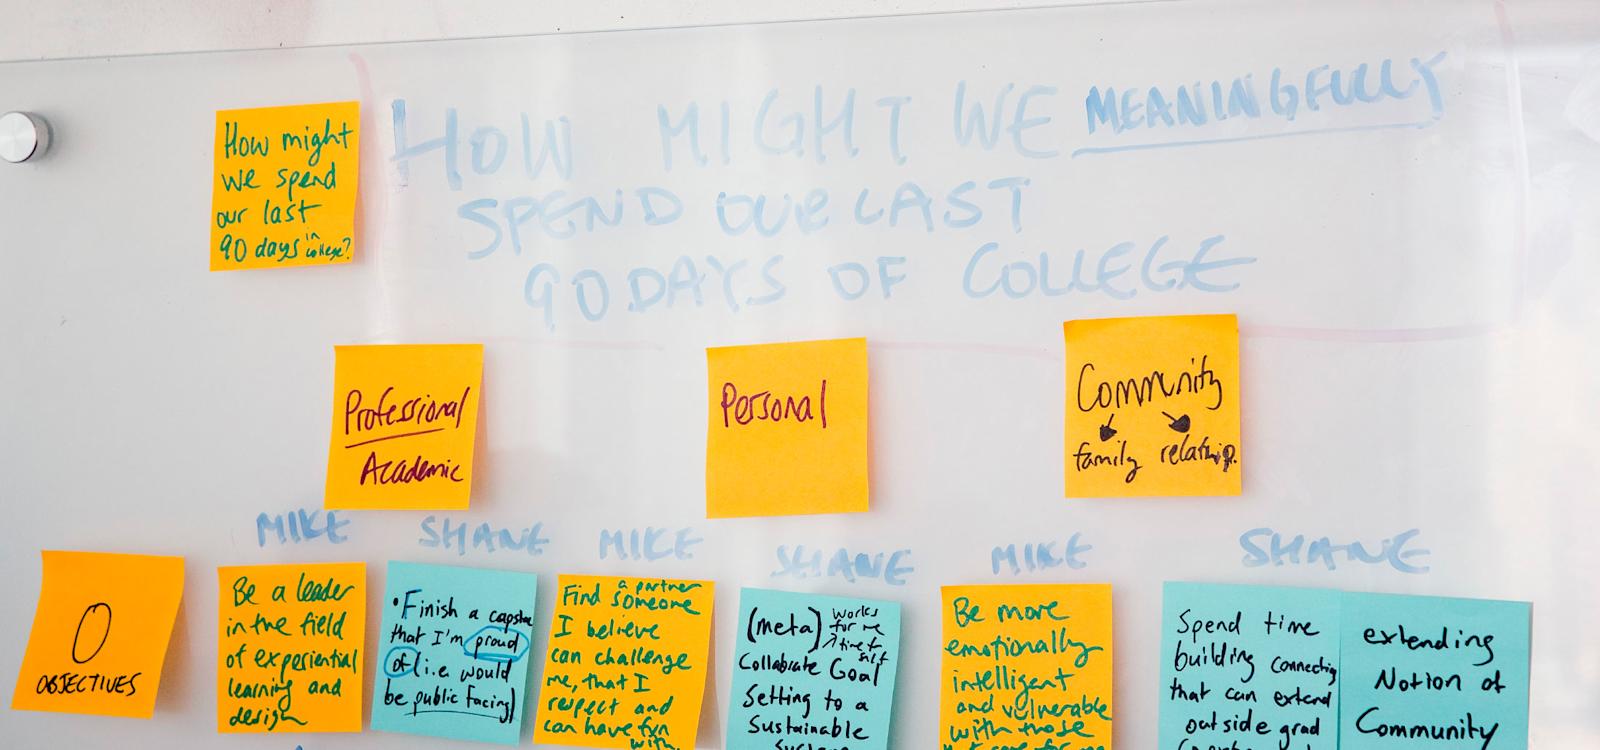 How might
we spend
our last
90 days in
college?
HOW MIGHT WE MEANINGFULLY
SPEND OUR LAST
90 DAYS OF COLLEGE
Professional
Academic
Personal
Community
family relatnship.
MIKE
SHANE
MIKE
SHANE
MIKE
SHANE
O
OBJECTIVES
Be a leader
in the field
of experiential
learning and
design
• Finish a capstone
that I'm proud
of (i.e. would
be public facing)
a partner
Find someone
I believe
can challenge
me, that I
respect and
can have fun
with.
(meta) works
for me
Collabrate Goal
Setting to a
Sustainable
System
Be more
emotionally
intelligent
and vulnerable
with those
Spend time
building connecting
that can extend
outside grad
extending
Notion of
Community